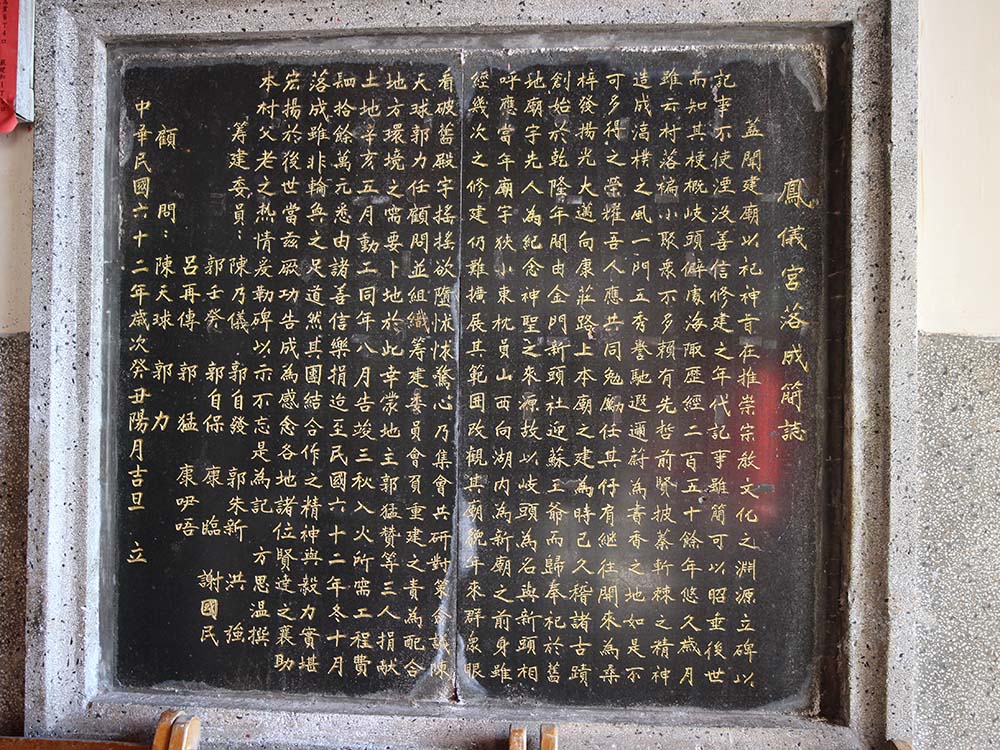 鳳儀宮落成簡誌
蓋聞建廟以祀神旨在推崇宗教文化之淵源立碑以
記事不使湮沒善信修建之年代記事雖簡可以昭垂後世
而知其梗概岐頭僻處海陬歷經二百五十餘年悠久歲月
雖云村落褊小聚衆不多賴有先哲前賢披荼斬棘之精神
造成淳樸之風一門五秀譽馳遐邇蔚為書香之地如是不
可多得之榮耀吾人應共同勉勵仕其仔肩繼往開來為桑
梓發揚光大邁向康莊路上本廟之建為時已久稽諸古蹟
創始於乾隆年間由金門新頭社迎蘇王爺而歸奉祀於舊
地廟宇先人為紀念神聖之來源故以岐頭為名與新頭相
呼應當年廟宇狹小東枕員山西向湖內為新廟之前身雖
經幾次之修建仍難擴展其範囲改觀其廟貌年來群衆眼
看破舊殿宇搖搖欲墮怵怵驚心乃集會共研對策僉議陳
天球郭力任顧問並組織籌建委員會負重建之責為配合
地方環境之需要卜地於此幸蒙地主郭猛贊等三人捐献
土地辛亥五月動工同年八月告竣三秋入火所需工程費
肆拾餘萬元悉由諸善信樂捐迨至民國六十二年冬十月
落成雖非輪奐之足道然其團結合作之精神與毅力實堪
宏揚於後世當茲厥功告成為感念各地諸位賢達之襄助
本村父老之熱情爰勒碑以示不忘是為記　方思温撰
籌建委員：陳乃儀　郭自發　郭朱新　洪　強
郭壬癸　郭自保　康　臨　謝國民
呂再傳　郭　猛　康咿唔
顧　問：陳天球　郭　力
中華民國六十二年歲次癸丑陽月吉旦　立